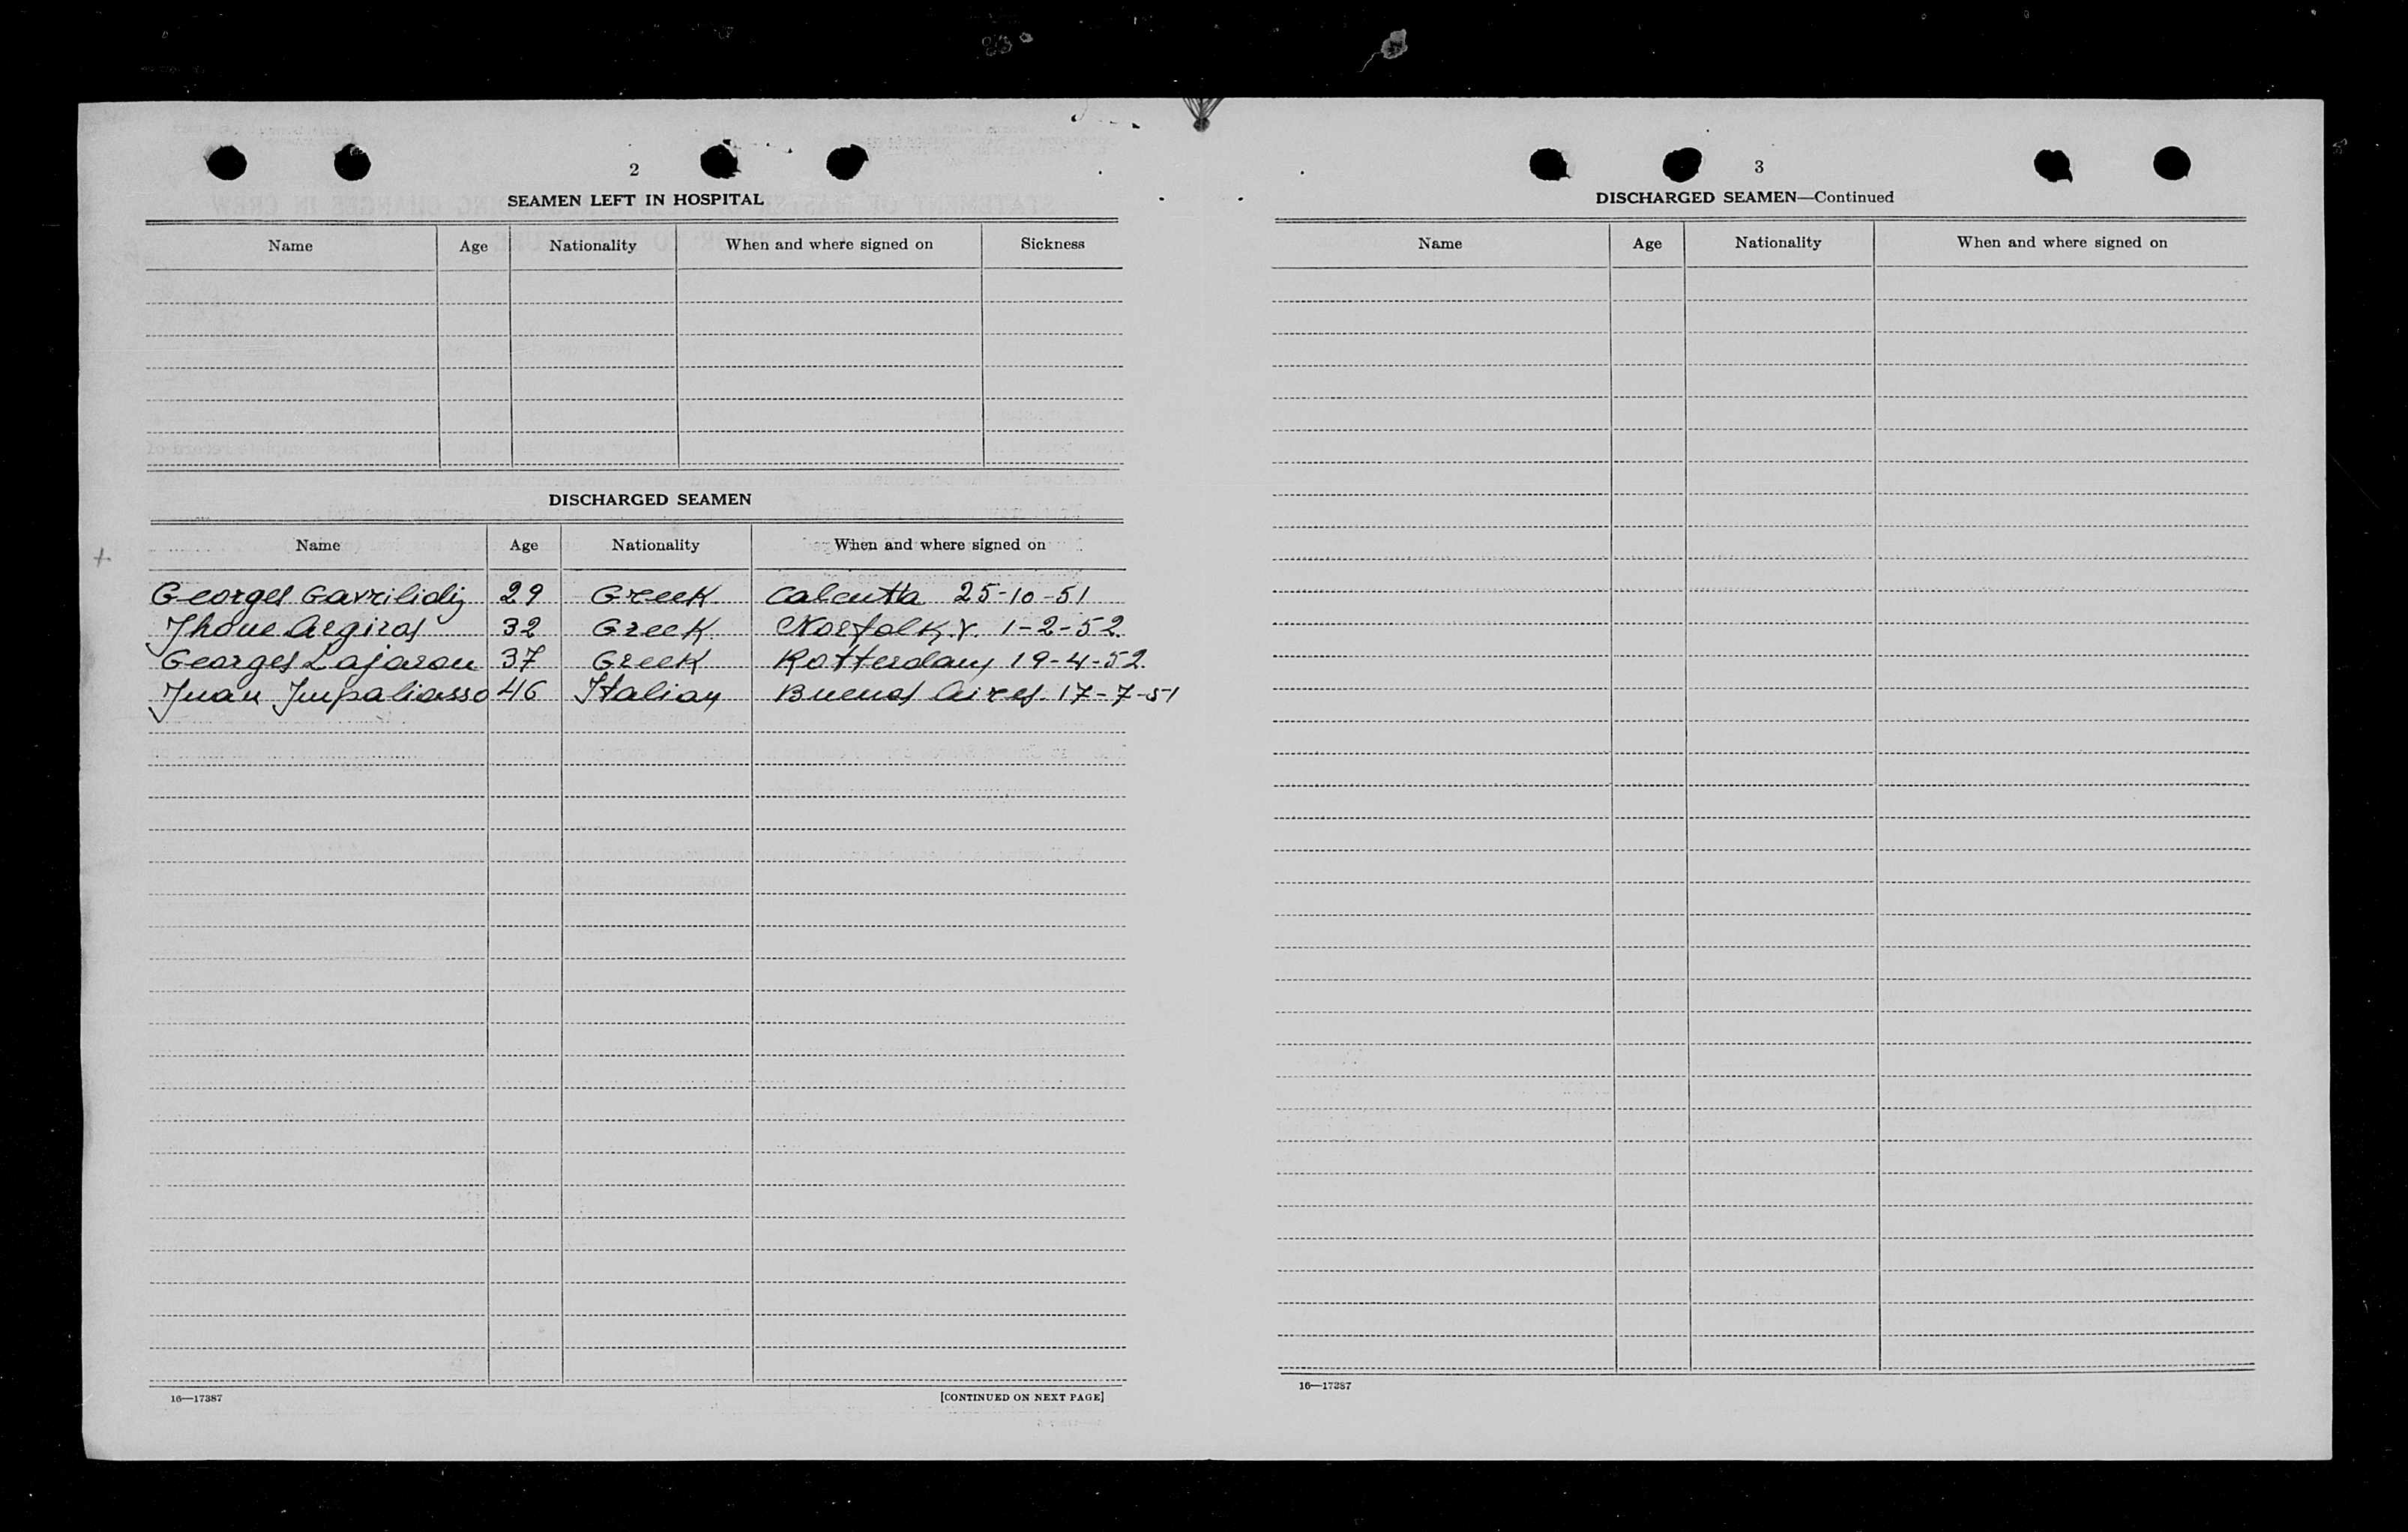 2
SEAMEN LEFT IN HOSPITAL
Name Age Nationality When and where signed on Sickness
DISCHARGED SEAMEN
Name Age Nationality When and where signed on
Georges Gavrilidis 29 Greek Calcutta 25-10-51
Jhone Argiros 32 Greek Norfolk V. 1-2-52
Georges Lajarou 37 Greek Rotterdam 19-4-52
Juan Impaliasso 46 Italian Buenos Aires 17-7-51
16—17387 [CONTINUED ON NEXT PAGE]
3
DISCHARGED SEAMEN—Continued
Name Age Nationality When and where signed on
16—17387